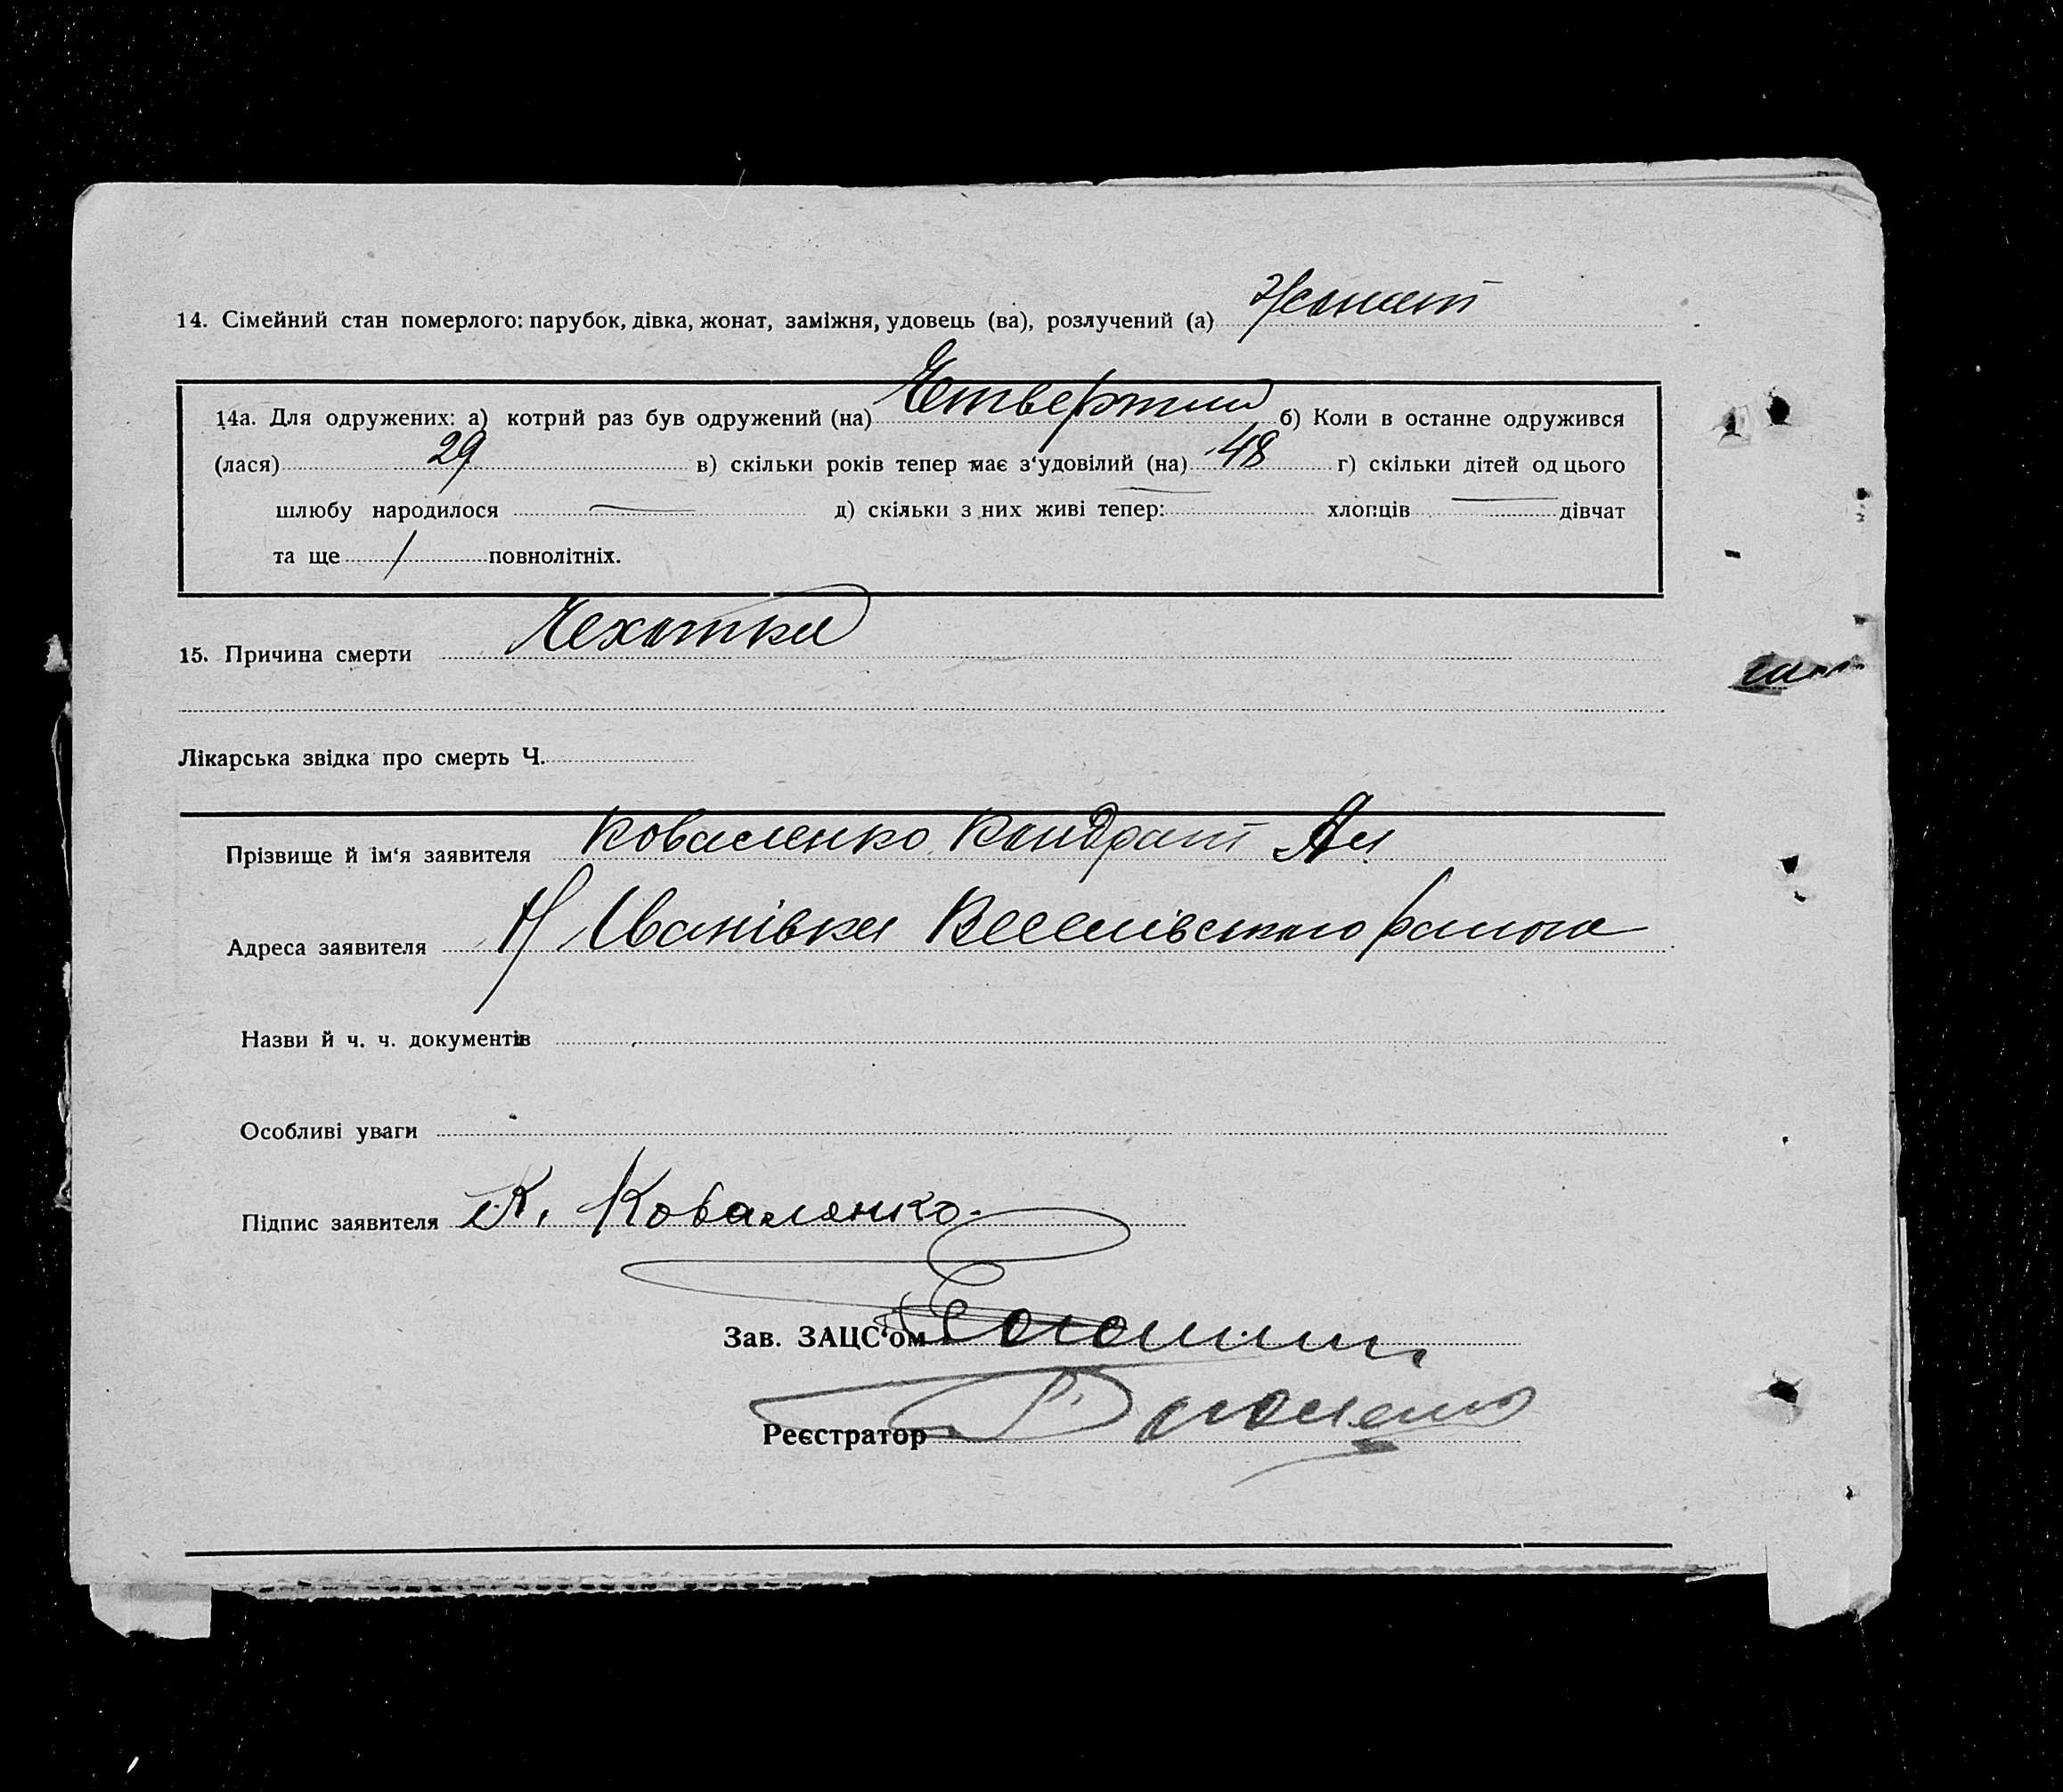 14. Сімейний стан померлого: парубок, дівка, жонат, заміжня, удовець (ва), розлучений (а) Жонат
14а. Для одружених: а) котрий раз був одружений (на) Четвертий б) Коли в останне одружився
(лася) 29 в) скільки років тепер має з‘удовілий (на) 48 г) скільки дітей од цього
шлюбу народилося — д) скільки з них живі тепер: — хлопців — дівчат
та ще / повнолітніх.
15. Причина смерти Чехотка
Лікарська звідка про смерть Ч.
Прізвище й ім‘я заявителя Коваленко Кондрат Ян
Адреса заявителя Н Іванівка Веселівського района
Назви й ч. ч. документів
Особливі уваги
Підпис заявителя К. Коваленко
Зав. ЗАЦС‘ом
Реєстратор